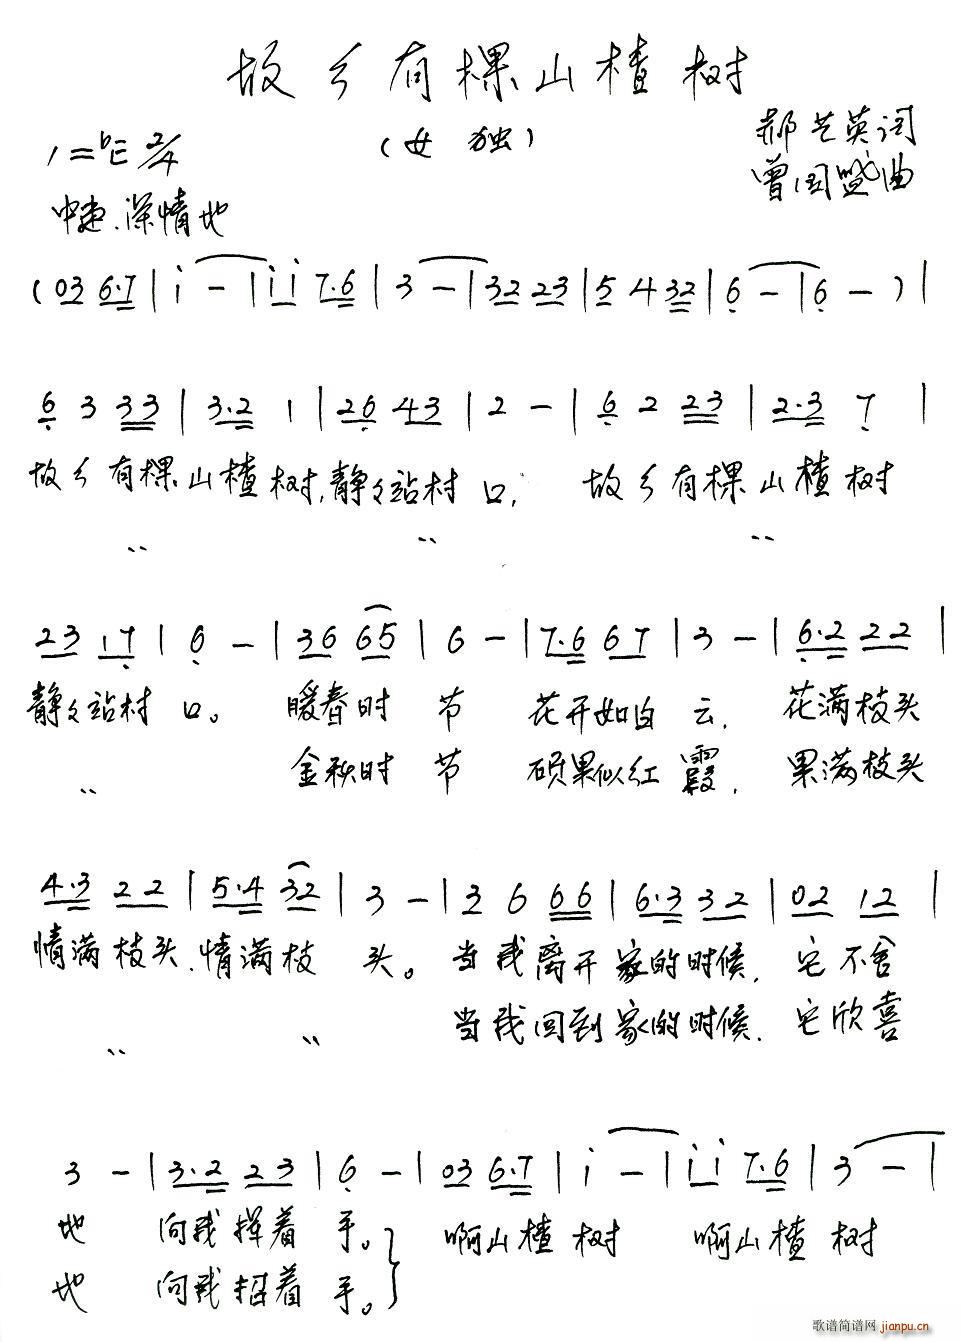 故乡有棵山楂树
(女 独)
1=♭E 2/4
郝艺英词
曾国盛曲
中速.深情地
(03 6·7 | i - | i i 7·6 | 3 - | 32 23 | 5 4 32 | 6 - | 6 - ) |
6 3 33 | 3·2 1 | 26 43 | 2 - | 6 2 23 | 2·3 7 |
故乡有棵山楂树,静々站村口, 故乡有棵山楂树
〃 〃 〃
23 17 | 6 - | 36 65 | 6 - | 7·6 67 | 3 - | 6·2 22 |
静々站村口。 暖春时 节 花开如白 云, 花满枝头
〃 金秋时 节 硕果似红 霞, 果满枝头
4·3 22 | 5·4 32 | 3 - | 3 6 66 | 6·3 32 | 02 12 |
情满枝头,情满枝 头。 当我离开家的时候, 它不舍
〃 〃 当我回到家的时候, 它欣喜
3 - | 3·2 23 | 6 - | 03 6·7 | i - | i i 7·6 | 3 - |
地 向我挥着 手。 啊山楂树 啊山楂树
地 向我招着 手。
歌谱简谱网
jianpu.cn